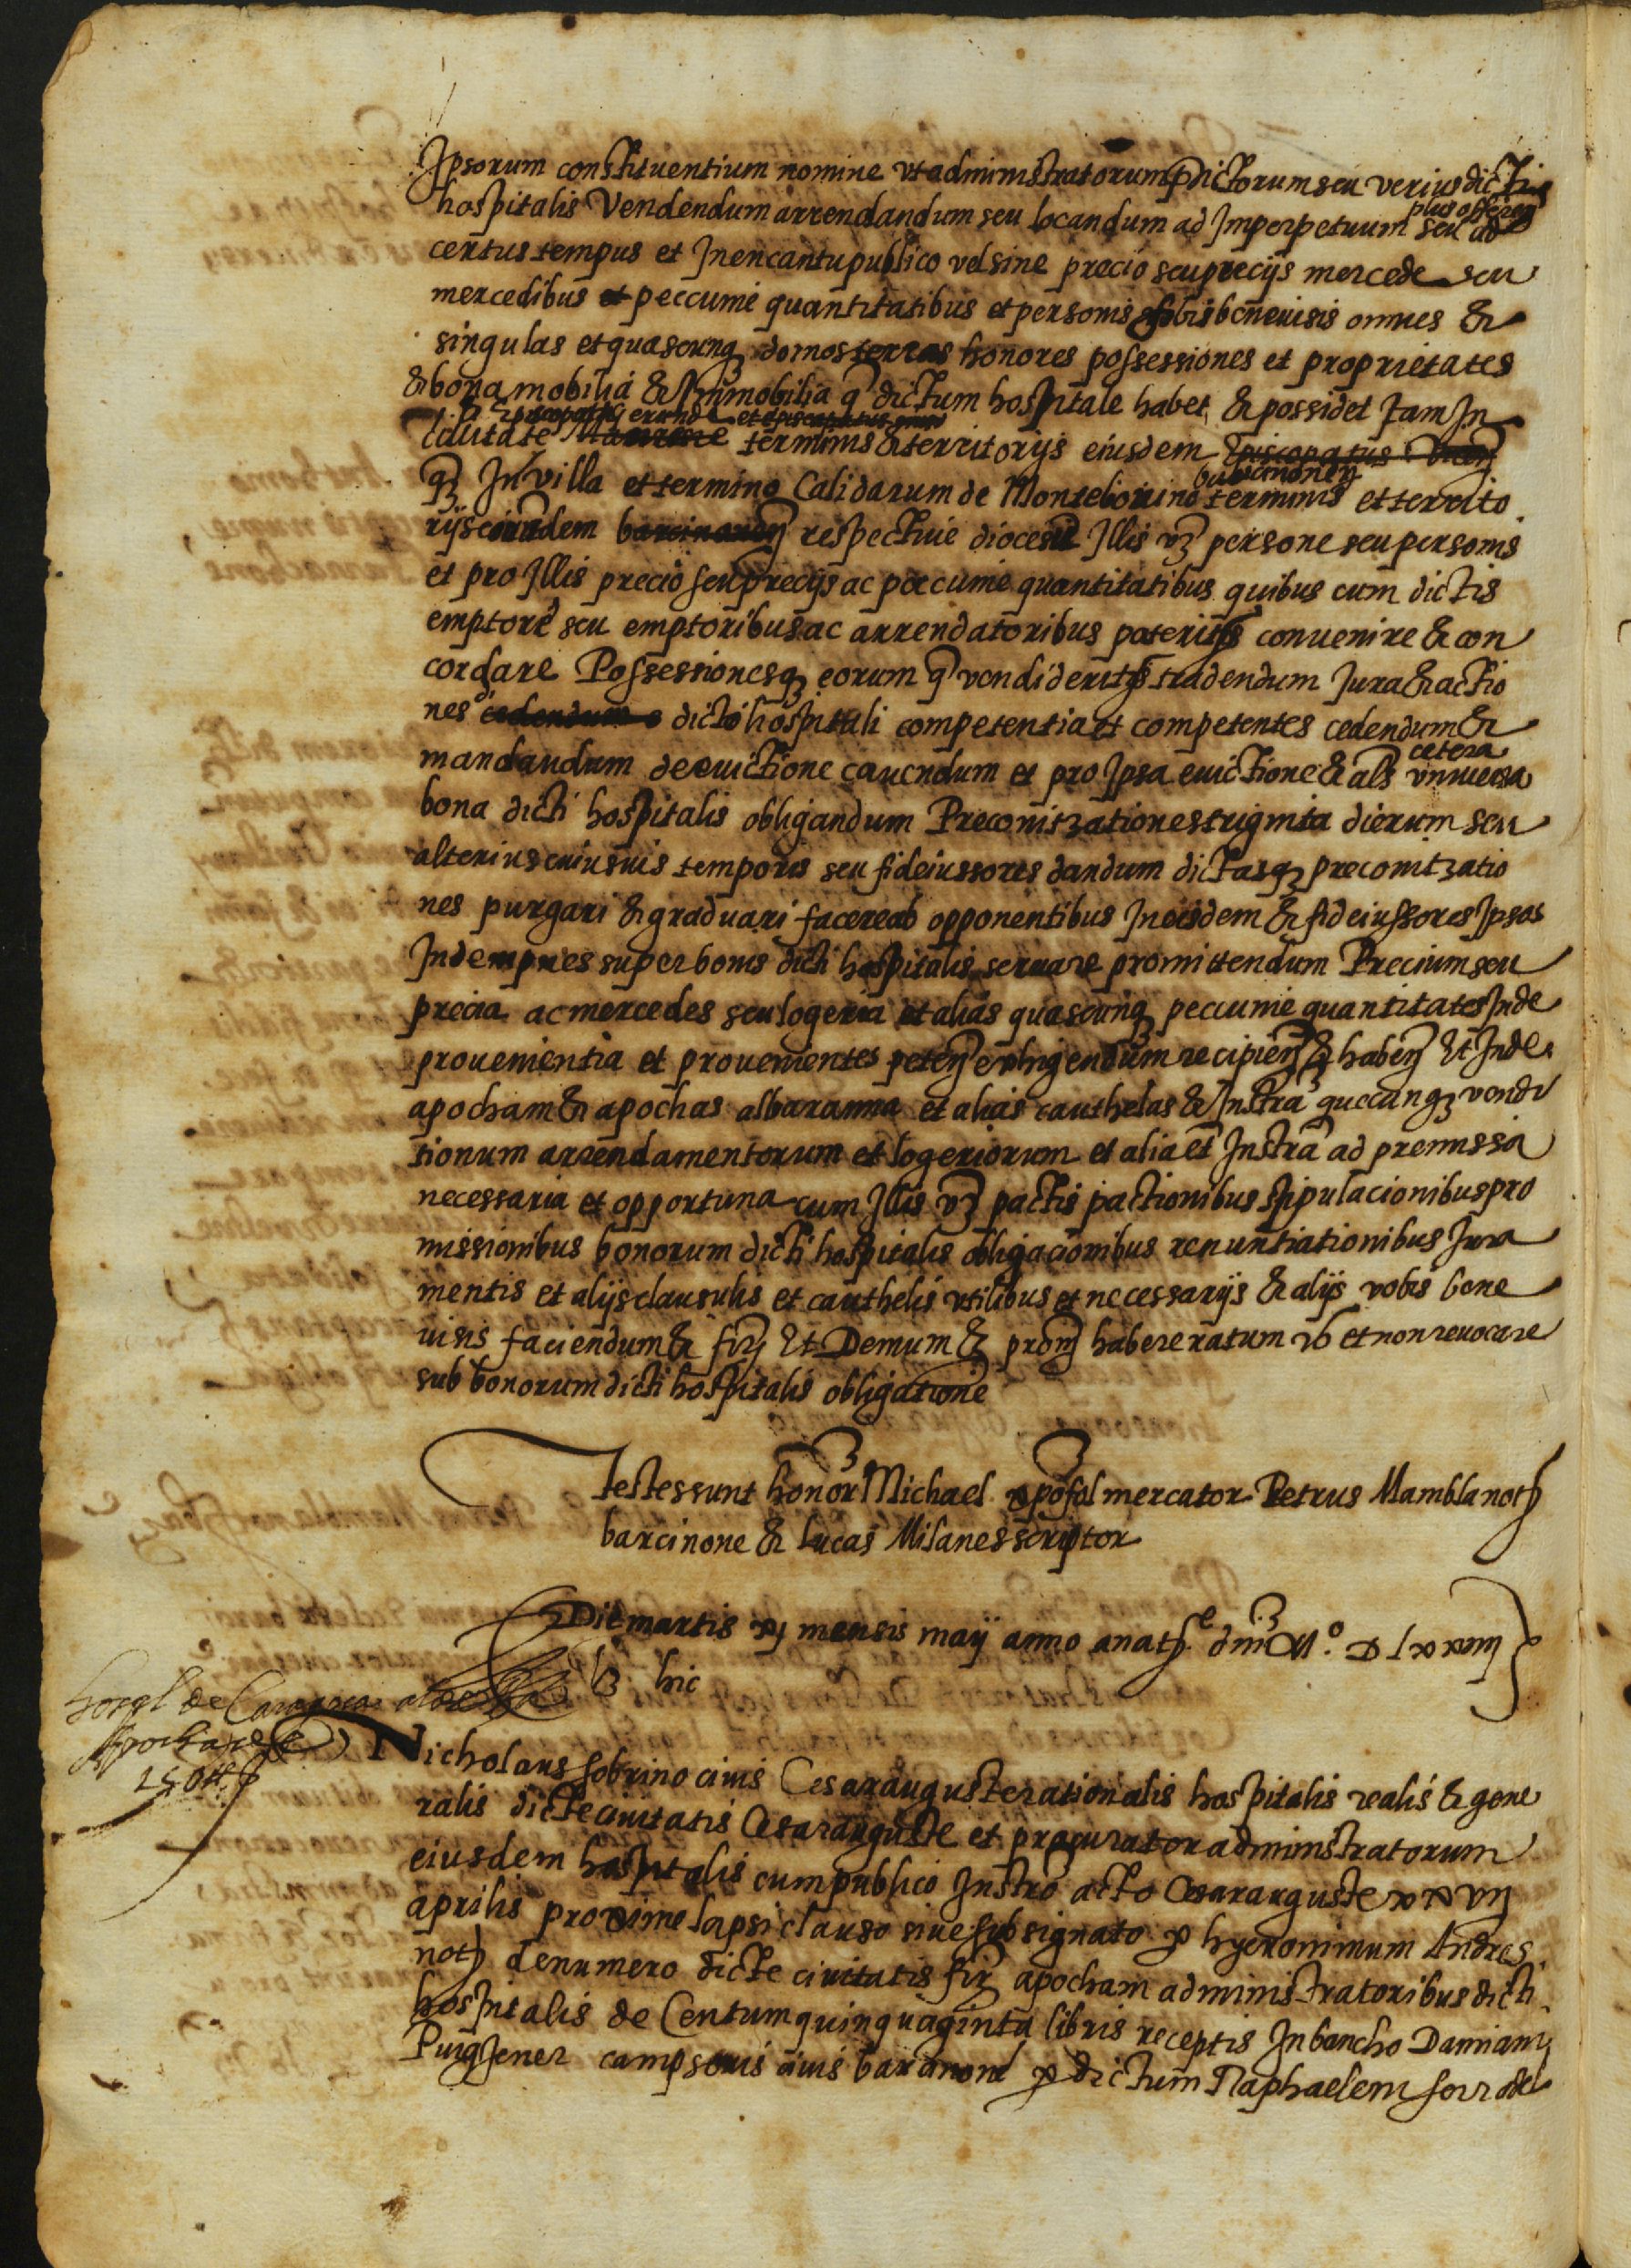 Ipsorum constituentium nomine ut administratorum pdictorum seu verius dicti
hospitalis Vendendum arrendandum seu locandum ad Imperpetuum seu ad
plus offeren
certus tempus et Inencantu publico vel sine precio seu precijs mercede seu
mercedibus et peccunie quantitatibus et personis vobis beneuisis omnes &
singulas et quascunq domos terras honores possessiones et proprietates
& bona mobilia & Immobilia q dictum hospitale habet & possidet Iam In
Ciuitate terminis & territorijs eiusdem Episcopatus
q In villa et termino Calidarum de Montebouino terminis et territo
barcinonen
rijs eiusdem barcinonen respectiue diocesis Illis vz persone seu personis
et pro Illis precio seu precijs ac peccunie quantitatibus quibus cum dictis
emptore seu emptoribus ac arrendatoribus poteritis conuenire & con
cordare Possessionesq eorum q vendideritis tradendum Iura & actio
nes cedendum dicto hospitali competentia et competentes cedendum &
mandandum de euictione cauendum et pro Ipsa euictione & als vniuersa
cetera
bona dicti hospitalis obligandum Preconitzationes triginta dierum seu
alterius cuiusuis temporis seu fideiussores dandum dictasq preconitzatio
nes purgari & graduari facere ab opponentibus In eisdem & fideiussores Ipsos
Indempnes super bonis dicti hospitalis seruare promittendum Precium seu
precia ac mercedes seu logeria et alias quascunq peccunie quantitates Inde
prouenientia et prouenientes peten exhigendum recipien & haben Et Inde
apocham & apochas albaranna et alias cauthelas & Instra quecunq vendi
tionum arrendamentorum et logeriorum et alia et Instra ad premissa
necessaria et opportuna cum Illis vz pactis pactionibus stipulacionibus pro
missionibus bonorum dicti hospitalis obligacionibus renuntiationibus Iura
mentis et alijs clausulis et cauthelis vtilibus et necessarijs & alijs vobis bene
uisis faciendum & fir Et Demum & prom habere ratum & et non reuocare
sub bonorum dicti hospitalis obligatione
Testes sunt honor Michael mercator Petrus Mamblanoth
barcinone & Lucas Milanes scriptor
Die martis xj mensis maij anno anate dni M.º D Lxxiiij
hic
hospl de Caragoca
Apocha de
150 ll
Nicholaus sobrino ciuis Cesarauguste rationalis hospitalis realis & gene
ralis dicte ciuitatis Cesarauguste et procurator administratorum
eiusdem hospitalis cum publico Instro acto Cesarauguste xxvij
aprilis proxime lapsi clauso siue subsignato p hyeronimum Andres
not de numero dicte ciuitatis fir apocham administratoribus dicti
hospitalis de Centum quinquaginta libris receptis In bancho Damiani
Puigjener campsoris ciuis barcinone p dictum Raphaelem